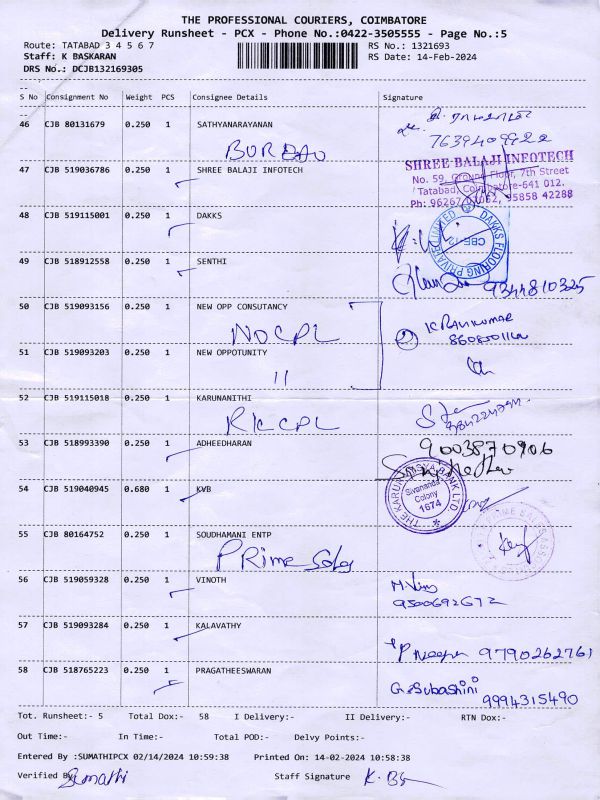 THE PROFESSIONAL COURIERS, COIMBATORE
Delivery Runsheet - PCX - Phone No.:0422-3505555 - Page No.:5
Route: TATABAD 3 4 5 6 7 RS No.: 1321693
Staff: K BASKARAN RS Date: 14-Feb-2024
DRS No.: DCJB132169305
S No Consignment No Weight PCS Consignee Details Signature
46 CJB 80131679 0.250 1 SATHYANARAYANAN
7639409922
47 CJB 519036786 0.250 1 SHREE BALAJI INFOTECH
SHREE BALAJI INFOTECH
No. 59, Ground Floor, 7th Street
Tatabad, Coimbatore-641 012.
95858 42288
48 CJB 519115001 0.250 1 DAKKS
DAKKS FLOORING PRIVATE LIMITED
CBE-12
49 CJB 518912558 0.250 1 SENTHI
9344810325
50 CJB 519093156 0.250 1 NEW OPP CONSUTANCY
NOCPL
K Ravikumar
51 CJB 519093203 0.250 1 NEW OPPOTUNITY
11
52 CJB 519115018 0.250 1 KARUNANITHI
53 CJB 518993390 0.250 1 ADHEEDHARAN
9003870906
54 CJB 519040945 0.680 1 KVB
THE KARUR VYSYA BANK LTD
Sivananda
Colony
1674
55 CJB 80164752 0.250 1 SOUDHAMANI ENTP
PRime Sales
56 CJB 519059328 0.250 1 VINOTH
9500692672
57 CJB 519093284 0.250 1 KALAVATHY
9790262761
58 CJB 518765223 0.250 1 PRAGATHEESWARAN
G. Subashini
9994315490
Tot. Runsheet:- 5 Total Dox:- 58 I Delivery:- II Delivery:- RTN Dox:-
Out Time:- In Time:- Total POD:- Delvy Points:-
Entered By :SUMATHIPCX 02/14/2024 10:59:38 Printed On: 14-02-2024 10:58:38
Verified By Sumathi Staff Signature